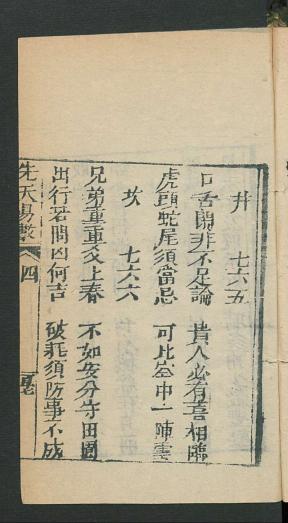 井　七六五
口舌閒非不足論　貴人必有喜相臨
虎頭蛇尾須當忌　可比空中一陣雲
坎　七六六
兄弟重重爻上春　不如安分守田園
出行若問凶何吉　破耗須防事不成
先天易數　四